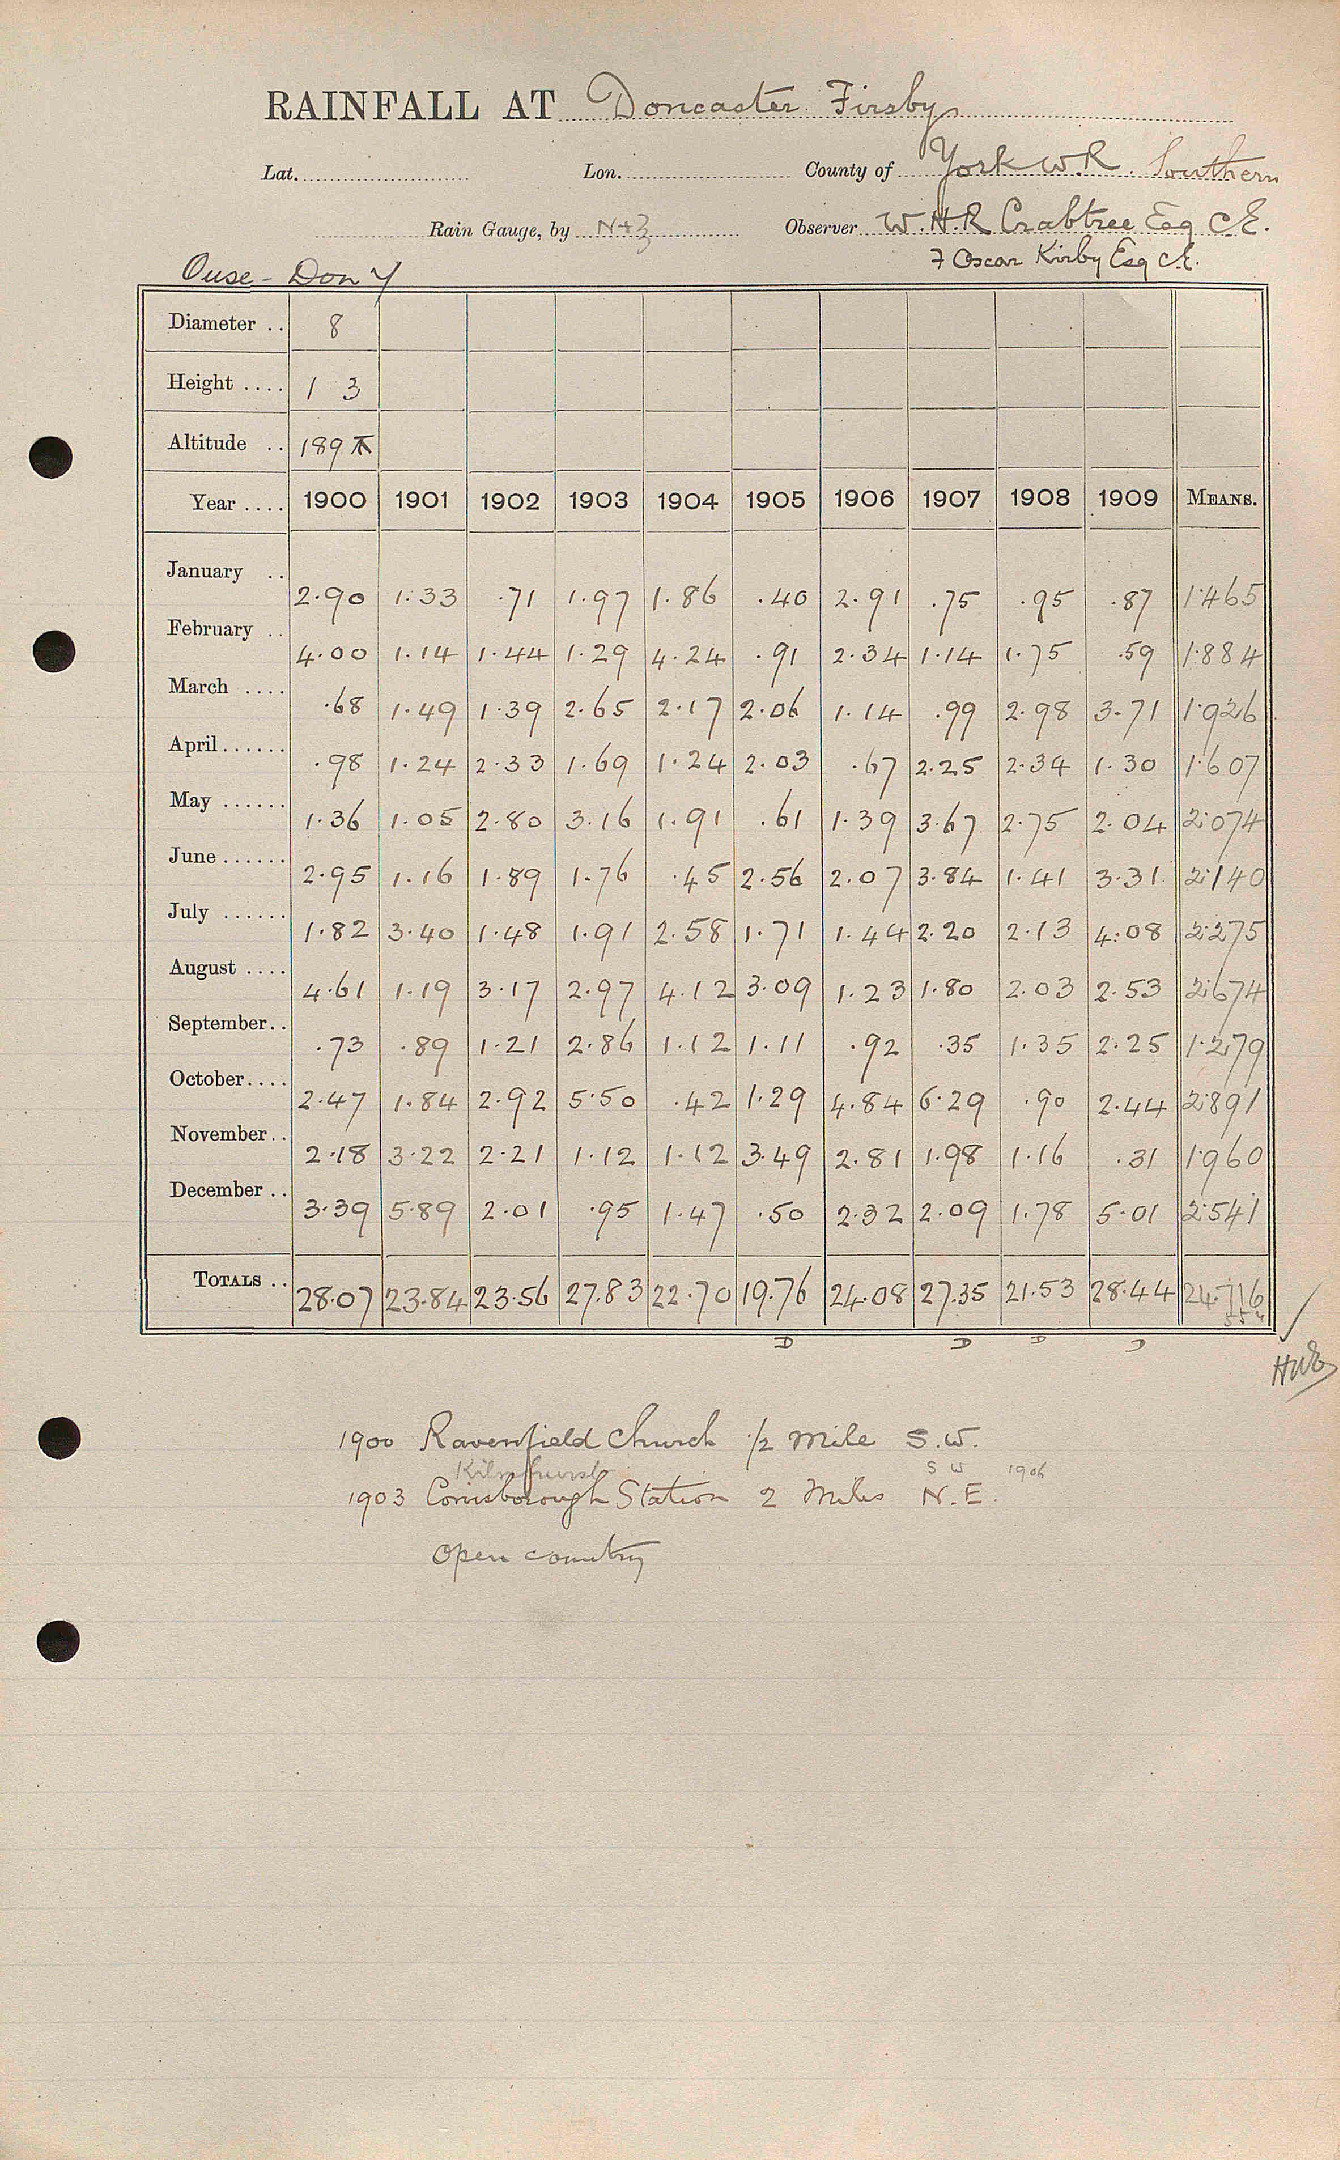 RAINFALL AT Doncaster Firsby
Lat. Lon. County of York W.R. Southern
Rain Gauge, by N+Z Observer W.H.R Crabtree Esq C.E.
7 Oscar Kirby Esq C.E.
Ouse - Don Y
Diameter .. 8
Height .... 1 3
Altitude .. 189
Year .... 1900 1901 1902 1903 1904 1905 1906 1907 1908 1909 MEANS.
January .. 2.90 1.33 .71 1.97 1.86 .40 2.91 .75 .95 .87 1.465
February .. 4.00 1.14 1.44 1.29 4.24 .91 2.34 1.14 1.75 .59 1.884
March .... .68 1.49 1.39 2.65 2.17 2.06 1.14 .99 2.98 3.71 1.926
April...... .98 1.24 2.33 1.69 1.24 2.03 .67 2.25 2.34 1.30 1.607
May ...... 1.36 1.05 2.80 3.16 1.91 .61 1.39 3.67 2.75 2.04 2.074
June ...... 2.95 1.16 1.89 1.76 .45 2.56 2.07 3.84 1.41 3.31 2.140
July ...... 1.82 3.40 1.48 1.91 2.58 1.71 1.44 2.20 2.13 4.08 2.275
August .... 4.61 1.19 3.17 2.97 4.12 3.09 1.23 1.80 2.03 2.53 2.674
September.. .73 .89 1.21 2.86 1.12 1.11 .92 .35 1.35 2.25 1.279
October.... 2.47 1.84 2.92 5.50 .42 1.29 4.84 6.29 .90 2.44 2.891
November.. 2.18 3.22 2.21 1.12 1.12 3.49 2.81 1.98 1.16 .31 1.960
December .. 3.39 5.89 2.01 .95 1.47 .50 2.32 2.09 1.78 5.01 2.541
TOTALS .. 28.07 23.84 23.56 27.83 22.70 19.76 24.08 27.35 21.53 28.44 24.716
D D D D
1900 Ravenfield Church 1/2 mile S.W.
Kilnhurst S W 1906
1903 Conisborough Station 2 Miles N.E.
Open country